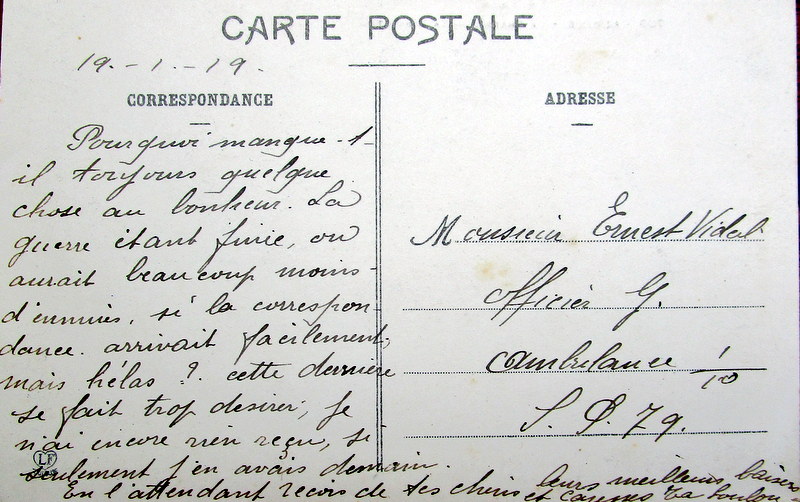 CARTE POSTALE
19.-1.-19.
CORRESPONDANCE
Pourquoi manque-t-
il toujours quelque
chose au bonheur. La
guerre étant finie, on
aurait beaucoup moins
d'ennuis, si la correspon-
dance. arrivait facilement,
mais hélas ?. cette dernière
se fait trop desirer, je
n'ai encore rien reçu, si
seulement j'en avais demain.
En l'attendant reçois de tes chéris leurs meilleurs baisers
et caresses Ta
LF
ADRESSE
Monsieur Ernest Vidal
Officier G.
Ambulance 1/10
S. P. 79.